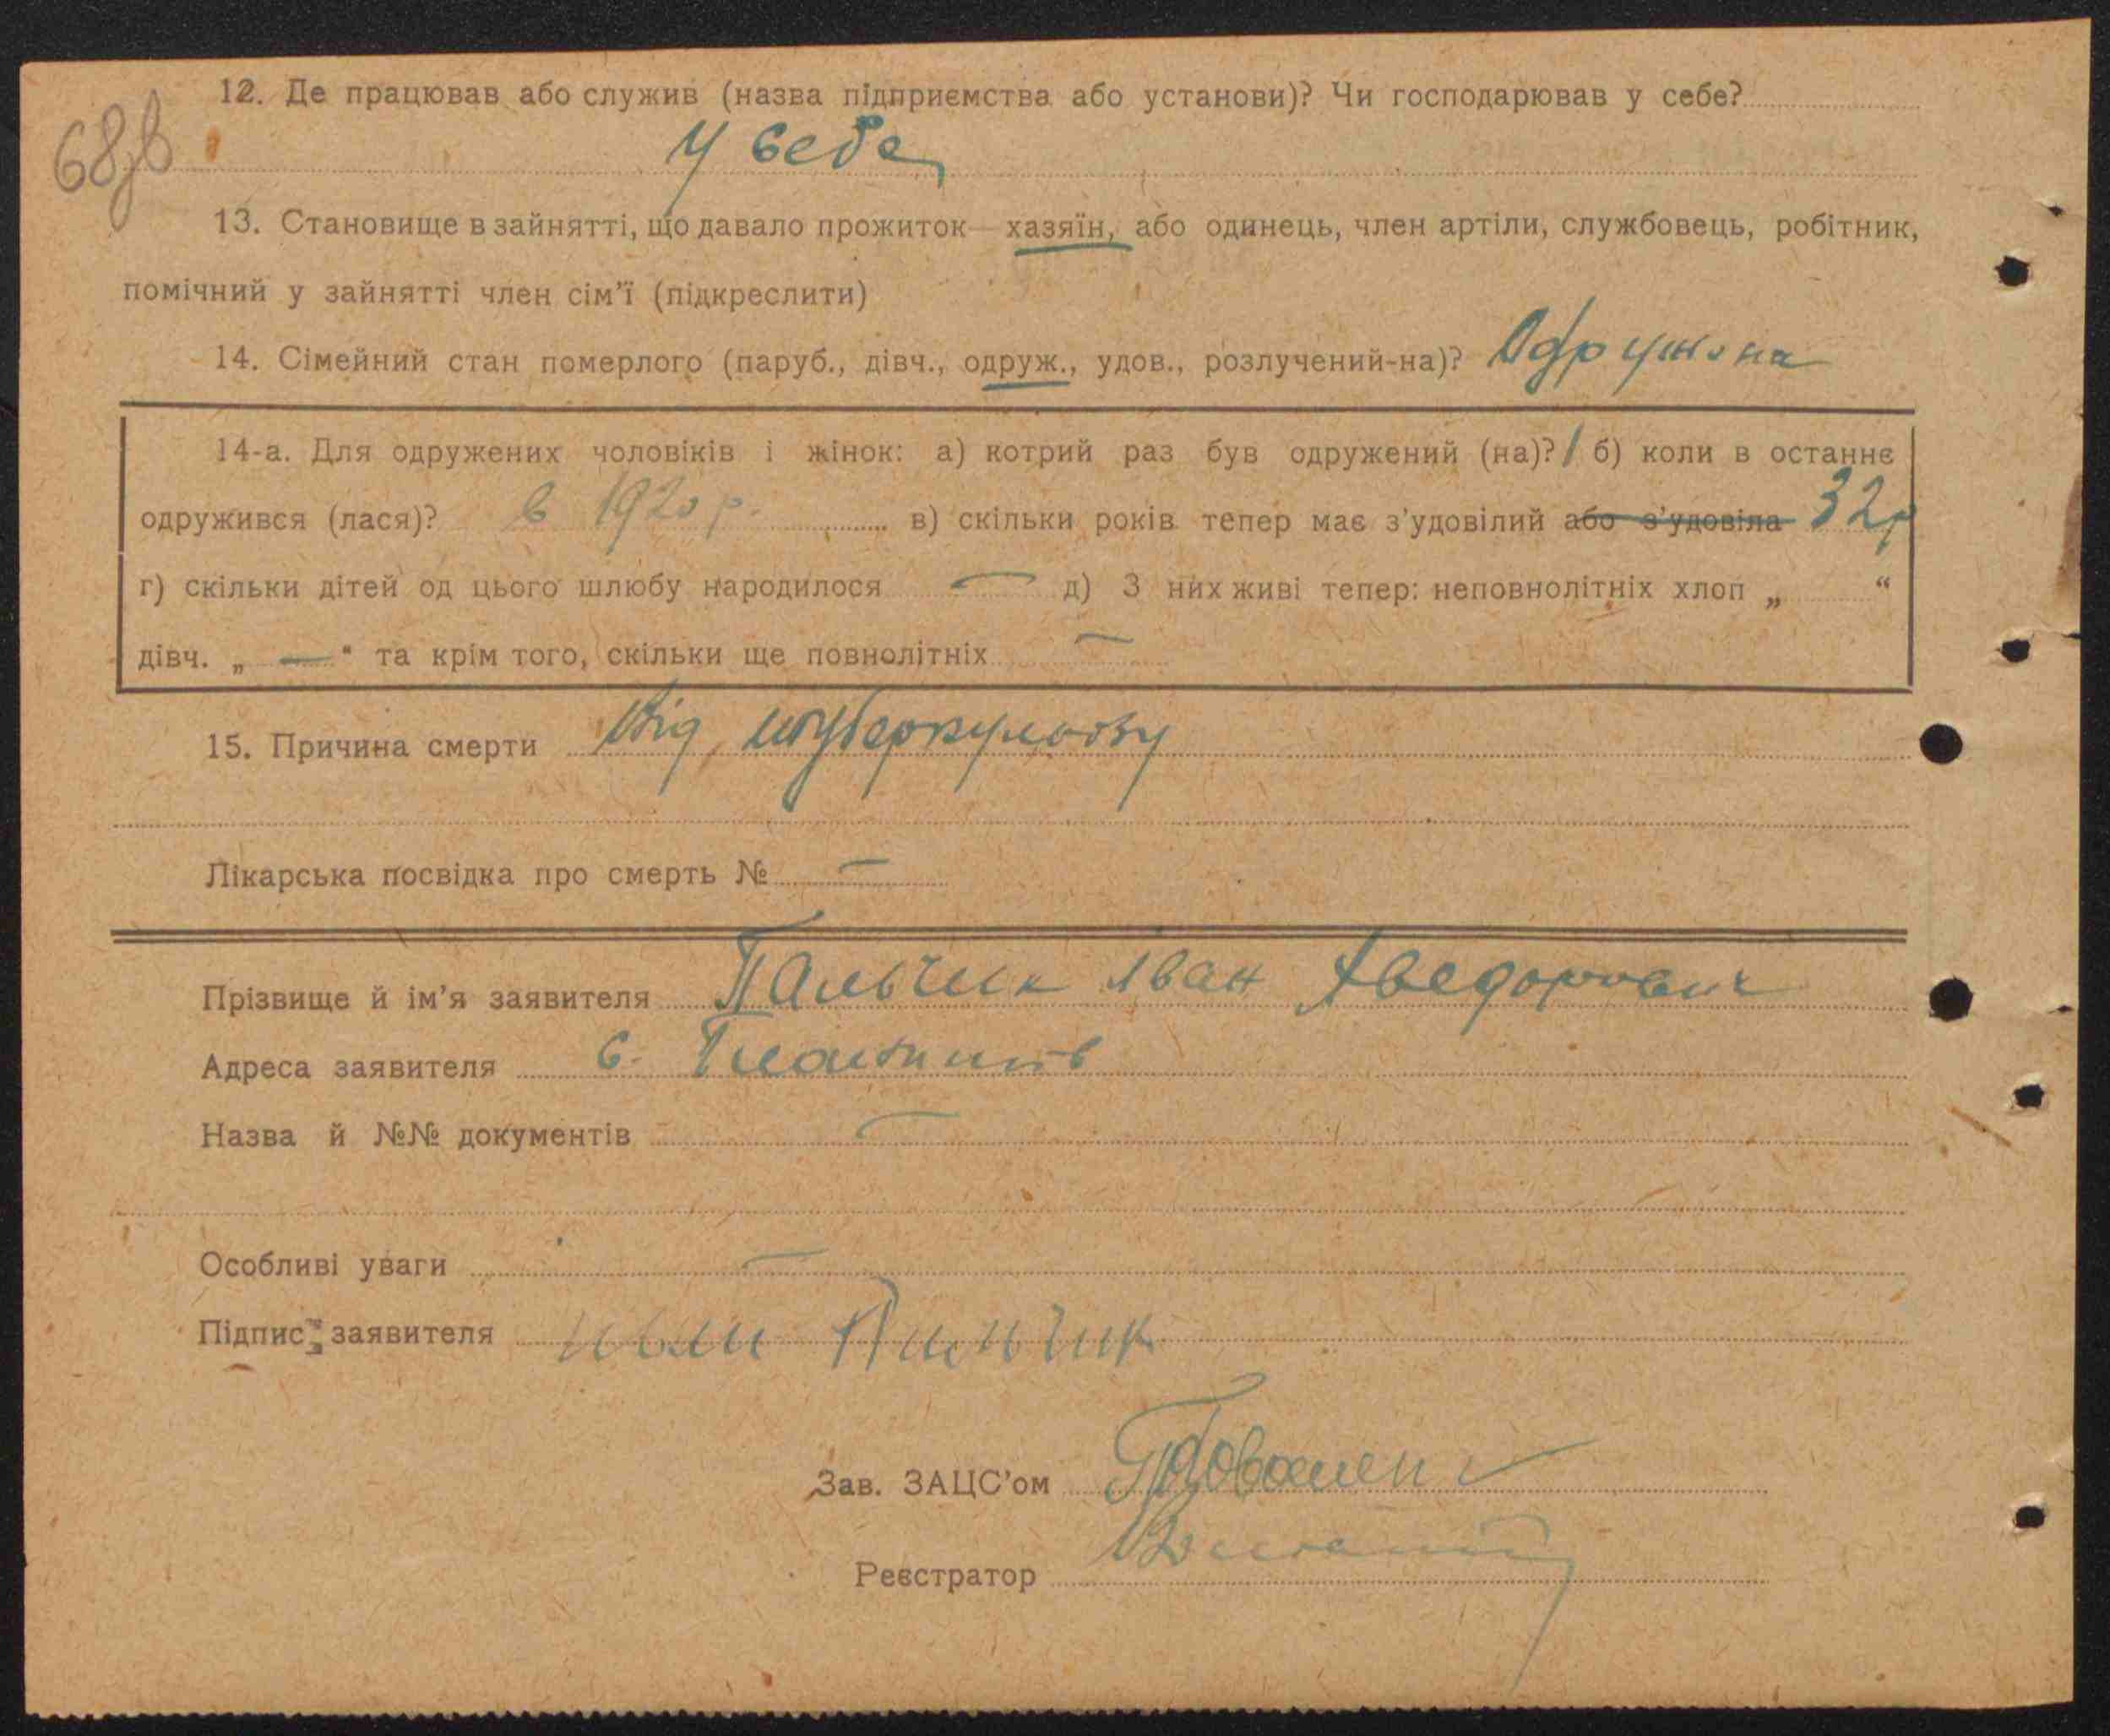 12. Де працював або служив (назва підприємства або установи)? Чи господарював у себе?
68зв
У себе
13. Становище в зайнятті, що давало прожиток — хазяїн, або одинець, член артіли, службовець, робітник,
помічний у зайнятті член сім’ї (підкреслити)
14. Сімейний стан померлого (паруб., дівч., одруж., удов., розлучений-на)? Одружона
14-а. Для одружених чоловіків і жінок: а) котрий раз був одружений (на)? 1 б) коли в останнє
одружився (лася)? в 1920 р. в) скільки років тепер має з'удовілий або з'удовіла 32 р
г) скільки дітей од цього шлюбу народилося — д) З них живі тепер: неповнолітніх хлоп „ “
дівч. „ — “ та крім того, скільки ще повнолітніх —
15. Причина смерти Від туберкульозу
Лікарська посвідка про смерть № —
Прізвище й ім’я заявителя Пальчик Іван Хведорович
Адреса заявителя с.
Назва й №№ документів —
Особливі уваги —
Підпис заявителя Иван Пальчик
Зав. ЗАЦС’ом
Реєстратор